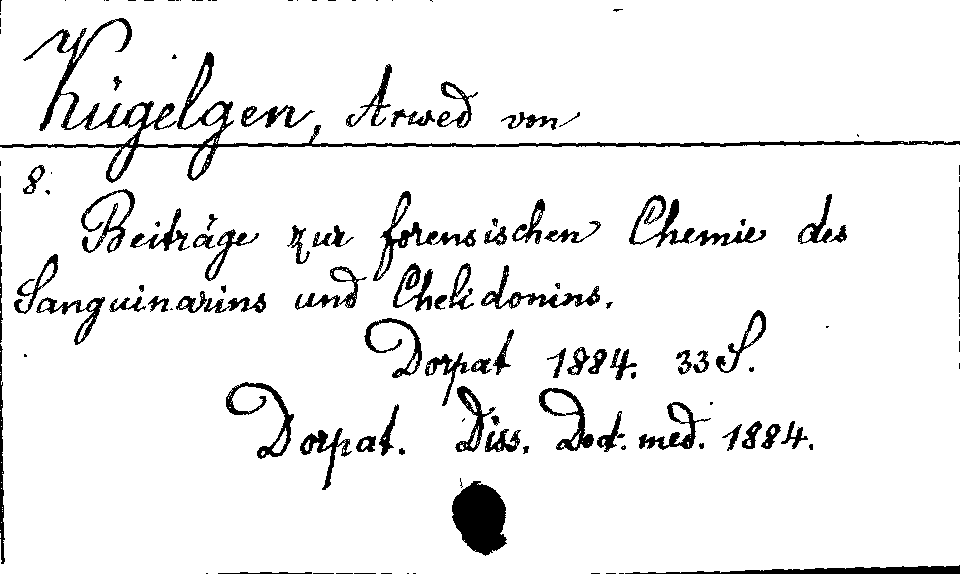 Kügelgen, Arwed von
8.
Beiträge zur forensischen Chemie des
Sanguinarins und Chelidonins.
Dorpat 1884. 33 S.
Dorpat. Diss. Doct. med. 1884.